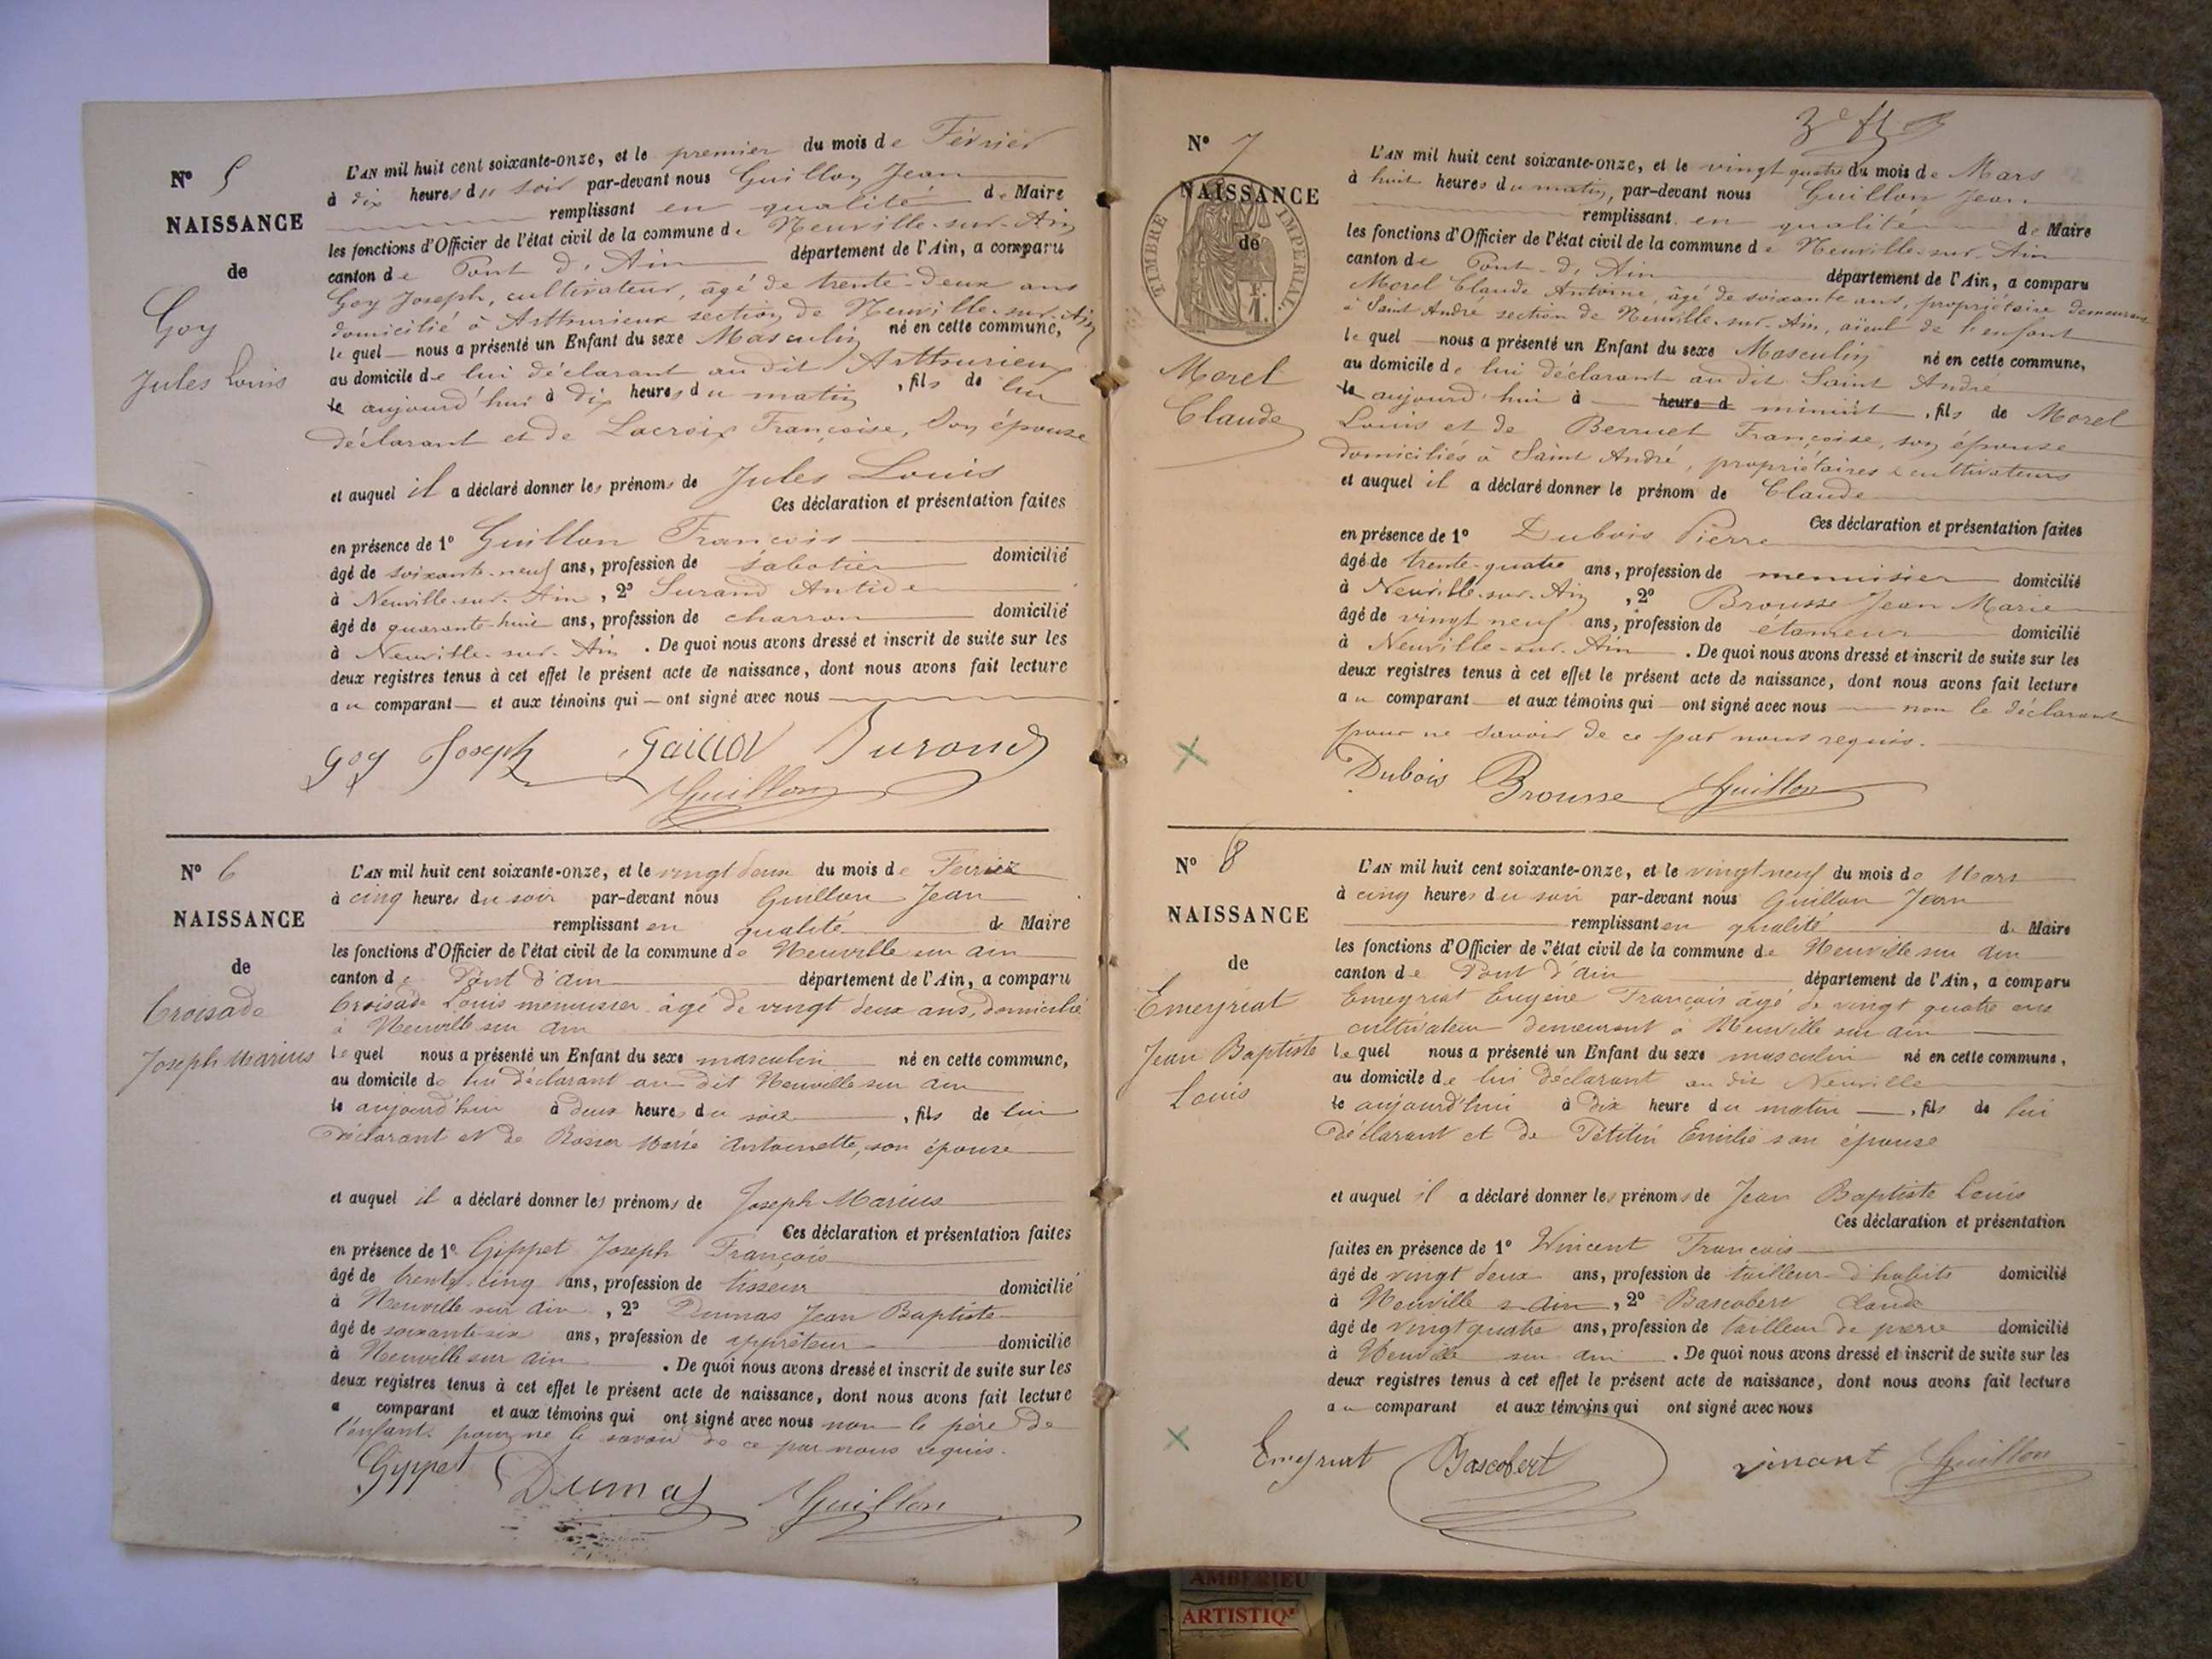 Nº 5
NAISSANCE
de
Goy
Jules Louis
L'AN mil huit cent soixante-onze, et le premier du mois de Février
à dix heures du soir par-devant nous Guillon Jean
remplissant en qualité de Maire
les fonctions d'Officier de l'état civil de la commune de Neuville-sur-Ain
canton de Pont d'Ain département de l'Ain, a comparu
Goy Joseph, cultivateur, âgé de trente-deux ans
domicilié à Arthurieux section de Neuville-sur-Ain
lequel nous a présenté un Enfant du sexe Masculin né en cette commune,
au domicile de lui déclarant au dit Arthurieux
le aujourd'hui à dix heures du matin, fils de lui
déclarant et de Lacroix Françoise, son épouse
et auquel il a déclaré donner les prénoms de Jules Louis
Ces déclaration et présentation faites
en présence de 1º Guillon François
âgé de soixante-neuf ans, profession de sabotier domicilié
à Neuville-sur-Ain, 2º Durand Antide
âgé de quarante-huit ans, profession de charron domicilié
à Neuville-sur-Ain. De quoi nous avons dressé et inscrit de suite sur les
deux registres tenus à cet effet le présent acte de naissance, dont nous avons fait lecture
au comparant et aux témoins qui ont signé avec nous
Goy Joseph Durand
Guillon
Nº 6
NAISSANCE
de
Croisade
Joseph Marius
L'AN mil huit cent soixante-onze, et le vingt deux du mois de Fevrier
à cinq heures du soir par-devant nous Guillon Jean
remplissant en qualité de Maire
les fonctions d'Officier de l'état civil de la commune de Neuville sur ain
canton de Pont d'ain département de l'Ain, a comparu
Croisade Louis menuisier âgé de vingt deux ans, domicilié
à Neuville sur ain
lequel nous a présenté un Enfant du sexe masculin né en cette commune,
au domicile de lui déclarant au dit Neuville sur ain
le aujourd'hui à deux heures du soir, fils de lui
déclarant et de Rosier Marie Antoinette, son épouse
et auquel il a déclaré donner les prénoms de Joseph Marius
Ces déclaration et présentation faites
en présence de 1º Gippet Joseph François
âgé de trente cinq ans, profession de tisseur domicilié
à Neuville sur ain, 2º Dumas Jean Baptiste
âgé de soixante six ans, profession de apprêteur domicilié
à Neuville sur ain. De quoi nous avons dressé et inscrit de suite sur les
deux registres tenus à cet effet le présent acte de naissance, dont nous avons fait lecture
a comparant et aux témoins qui ont signé avec nous non le père de
l'enfant pour ne le savoir de ce par nous requis.
Gippet Dumas Guillon
Nº 7
NAISSANCE
de
TIMBRE IMPERIAL
Morel
Claude
L'AN mil huit cent soixante-onze, et le vingt quatre du mois de Mars
à huit heures du matin, par-devant nous Guillon Jean
remplissant en qualité de Maire
les fonctions d'Officier de l'état civil de la commune de Neuville-sur-Ain
canton de Pont-d'Ain département de l'Ain, a comparu
Morel Claude Antoine, âgé de soixante ans, propriétaire demeurant
à Saint André section de Neuville-sur-Ain, aïeul de l'enfant
lequel nous a présenté un Enfant du sexe Masculin né en cette commune,
au domicile de lui déclarant au dit Saint André
le aujourd'hui à heure d minuit, fils de Morel
Louis et de Berruet Françoise, son épouse
domiciliés à Saint André, propriétaires cultivateurs
et auquel il a déclaré donner le prénom de Claude
Ces déclaration et présentation faites
en présence de 1º Dubois Pierre
âgé de trente-quatre ans, profession de menuisier domicilié
à Neuville-sur-Ain, 2º Brousse Jean Marie
âgé de vingt neuf ans, profession de étameur domicilié
à Neuville-sur-Ain. De quoi nous avons dressé et inscrit de suite sur les
deux registres tenus à cet effet le présent acte de naissance, dont nous avons fait lecture
au comparant et aux témoins qui ont signé avec nous non le déclarant
pour ne savoir de ce par nous requis.
Dubois Brousse Guillon
Nº 8
NAISSANCE
de
Emeyriat
Jean Baptiste
Louis
L'AN mil huit cent soixante-onze, et le vingt neuf du mois de Mars
à cinq heures du soir par-devant nous Guillon Jean
remplissant en qualité de Maire
les fonctions d'Officier de l'état civil de la commune de Neuville sur ain
canton de Pont d'ain département de l'Ain, a comparu
Emeyriat Eugène François âgé de vingt quatre ans
cultivateur demeurant à Neuville sur ain
lequel nous a présenté un Enfant du sexe masculin né en cette commune,
au domicile de lui déclarant au dit Neuville
le aujourd'hui à dix heure du matin, fils de lui
déclarant et de Petitin Emilie son épouse
et auquel il a déclaré donner les prénoms de Jean Baptiste Louis
Ces déclaration et présentation
faites en présence de 1º Vincent François
âgé de vingt deux ans, profession de tailleur d'habits domicilié
à Neuville s ain, 2º Bascobert Claude
âgé de vingt quatre ans, profession de tailleur de pierre domicilié
à Neuville sur ain. De quoi nous avons dressé et inscrit de suite sur les
deux registres tenus à cet effet le présent acte de naissance, dont nous avons fait lecture
au comparant et aux témoins qui ont signé avec nous
Bascobert Guillon
AMBERIEU
ARTISTIQ